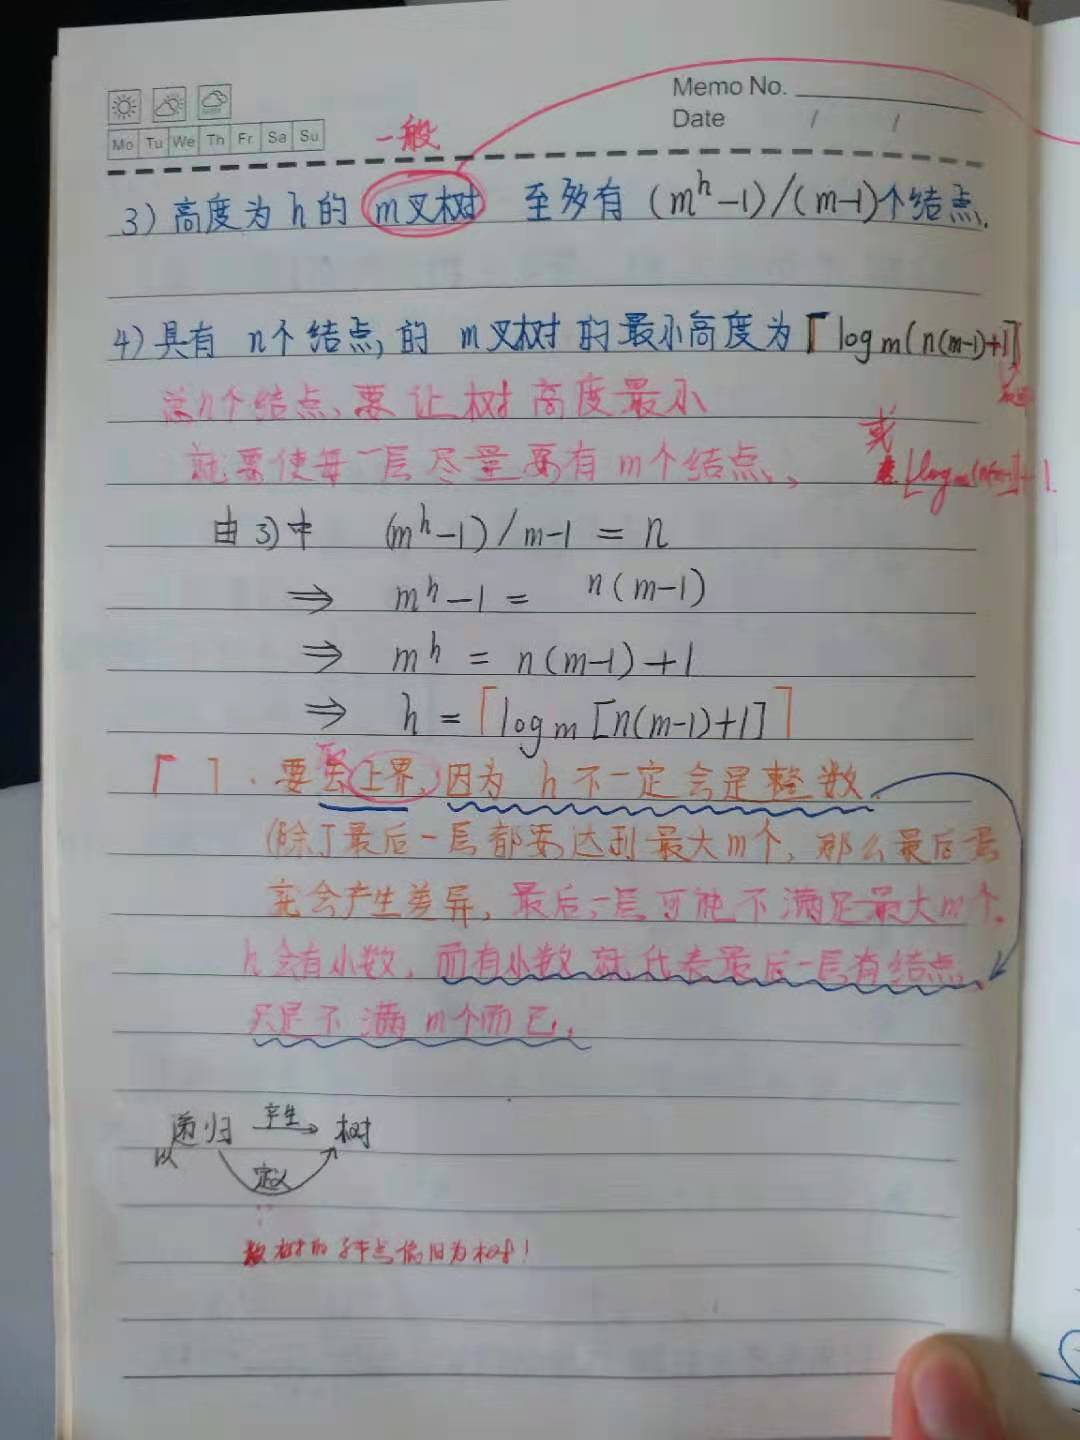 Memo No.
Date / /
Mo Tu We Th Fr Sa Su
一般
3) 高度为 h 的 m叉树 至多有 (m^h-1)/(m-1)个结点.
4) 具有 n个结点, 的 m叉树 的最小高度为⌈logm(n(m-1)+1)⌉
n个结点、要让树高度最小
或
就要使每一层尽量要有m个结点、,
由3)中 (m^h-1)/m-1 = n
⇒ m^h-1 = n(m-1)
⇒ m^h = n(m-1)+1
⇒ h = ⌈logm[n(m-1)+1]⌉
⌈ ⌉. 要上界, 因为 h 不一定会是整数.
(除了最后一层都要达到最大m个, 那么最后一层
就会产生差异, 最后一层可能不满足最大m个.
h会有小数, 而有小数就代表最后一层有结点,
只是不满m个而已.
递归 产生→ 树
以
定义
树的
为树!